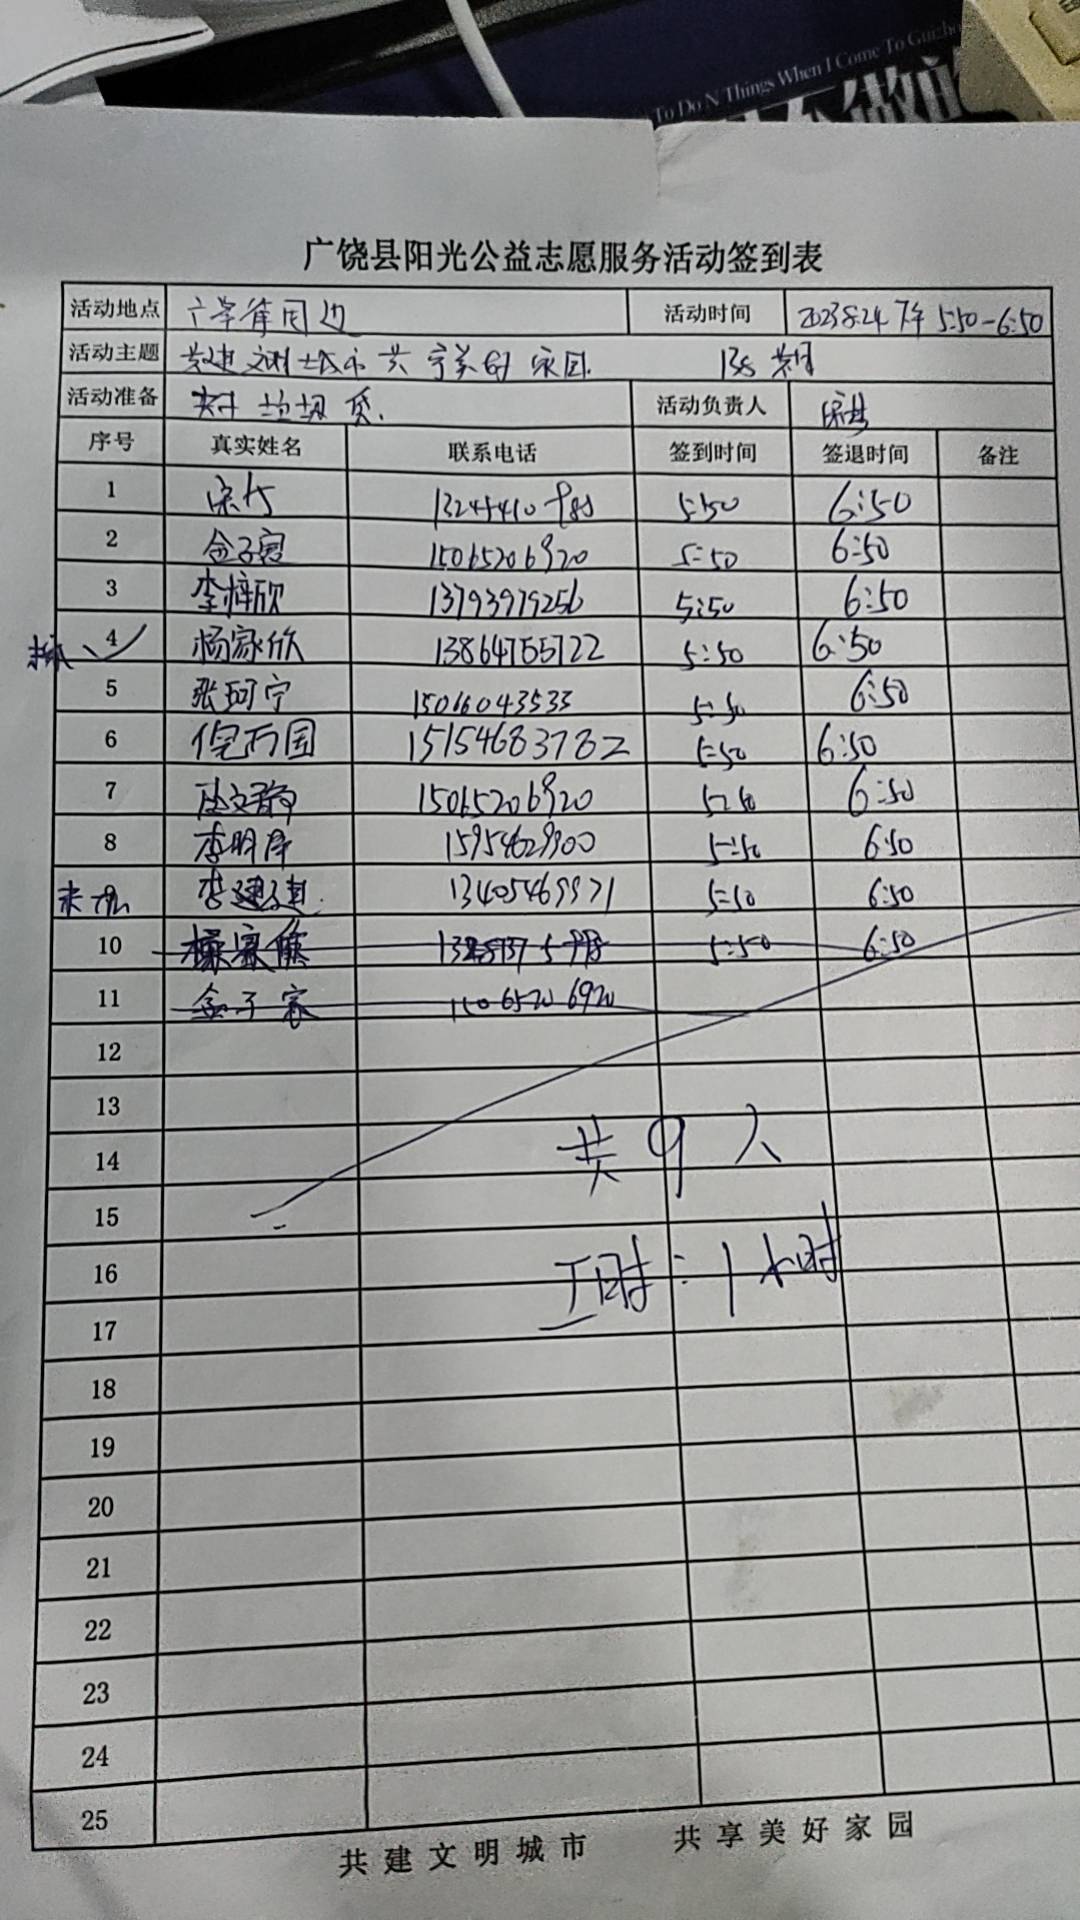 To Do N Things When I Come To Guizho
广饶县阳光公益志愿服务活动签到表
活动地点 周边 活动时间 2023.8.24 下午 5:50-6:50
活动主题 共建文明城市 共享美好家园 138期
活动准备 夹子 垃圾袋. 活动负责人
序号 真实姓名 联系电话 签到时间 签退时间 备注
1 5:50 6:50
2 15065206920 5:50 6:50
3 李梓欣 13793979256 5:50 6:50
4 杨家欣 13864755722 5:50 6:50
5 张珂宁 15066043533 5:50 6:50
6 倪万国 15154683782 5:50 6:50
7 15065206920 5:50 6:50
8 李明 15954629900 5:50 6:50
李建 13405469971 5:50 6:50
10 5:50 6:50
11 15065206920
12
13
14
共9人
15
16
工时:1小时
17
18
19
20
21
22
23
24
25
共建文明城市 共享美好家园